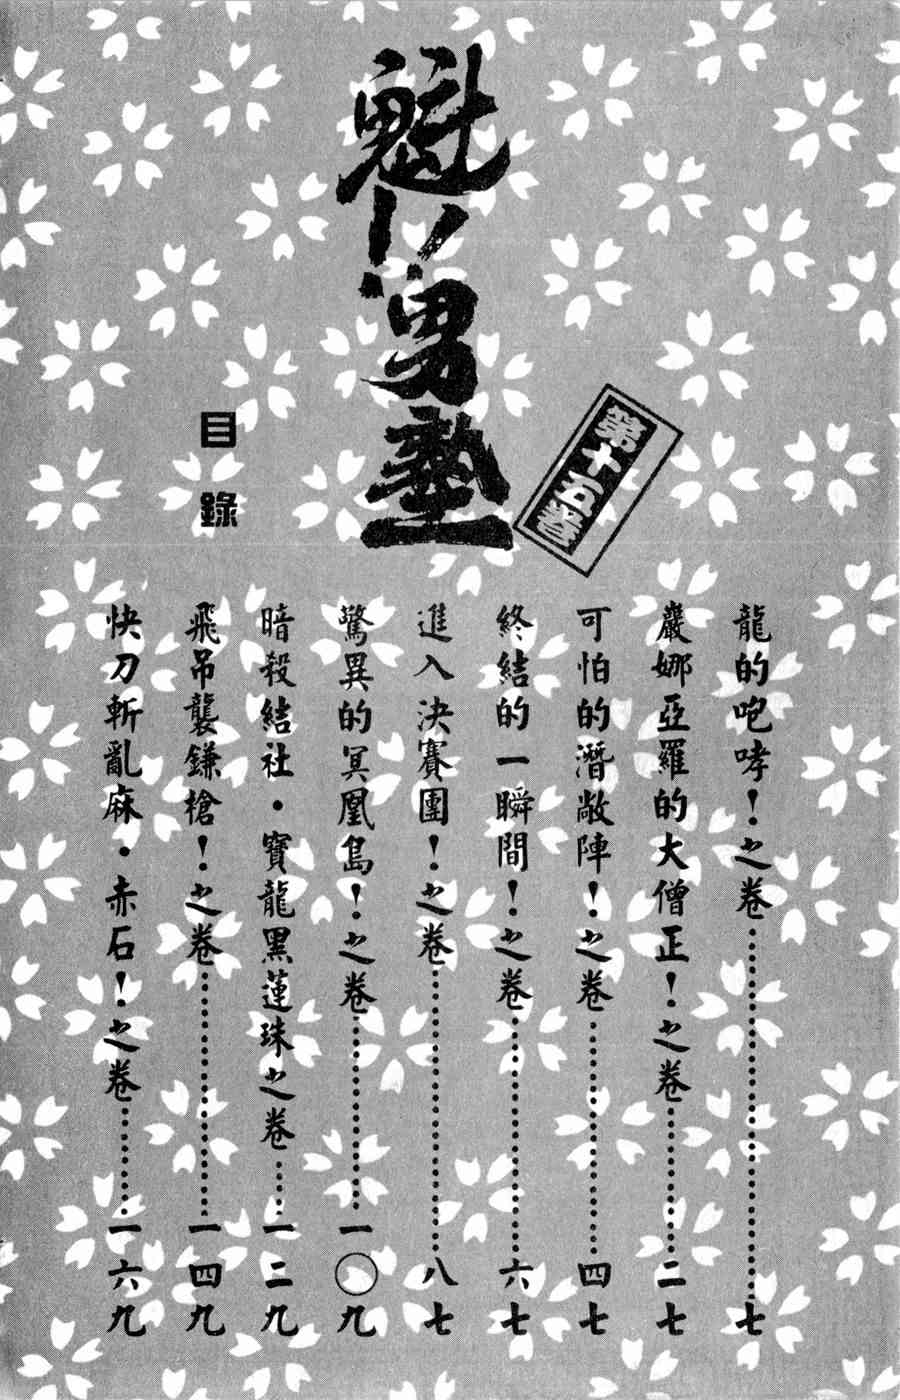 魁!!男塾
第十五卷
目錄
龍的咆哮！之卷……七
巖娜亞羅的大僧正！之卷……二七
可怕的潛敵陣！之卷……四七
終結的一瞬間！之卷……六七
進入決賽團！之卷……八七
驚異的冥凰島！之卷……一〇九
暗殺結社・寶龍黑蓮珠之卷……一二九
飛吊襲鎌槍！之卷……一四九
快刀斬亂麻・赤石！之卷……一六九